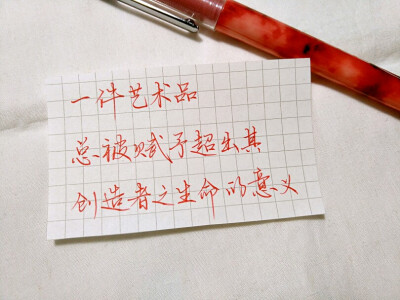 一件艺术品
总被赋予超出其
创造者之生命的意义